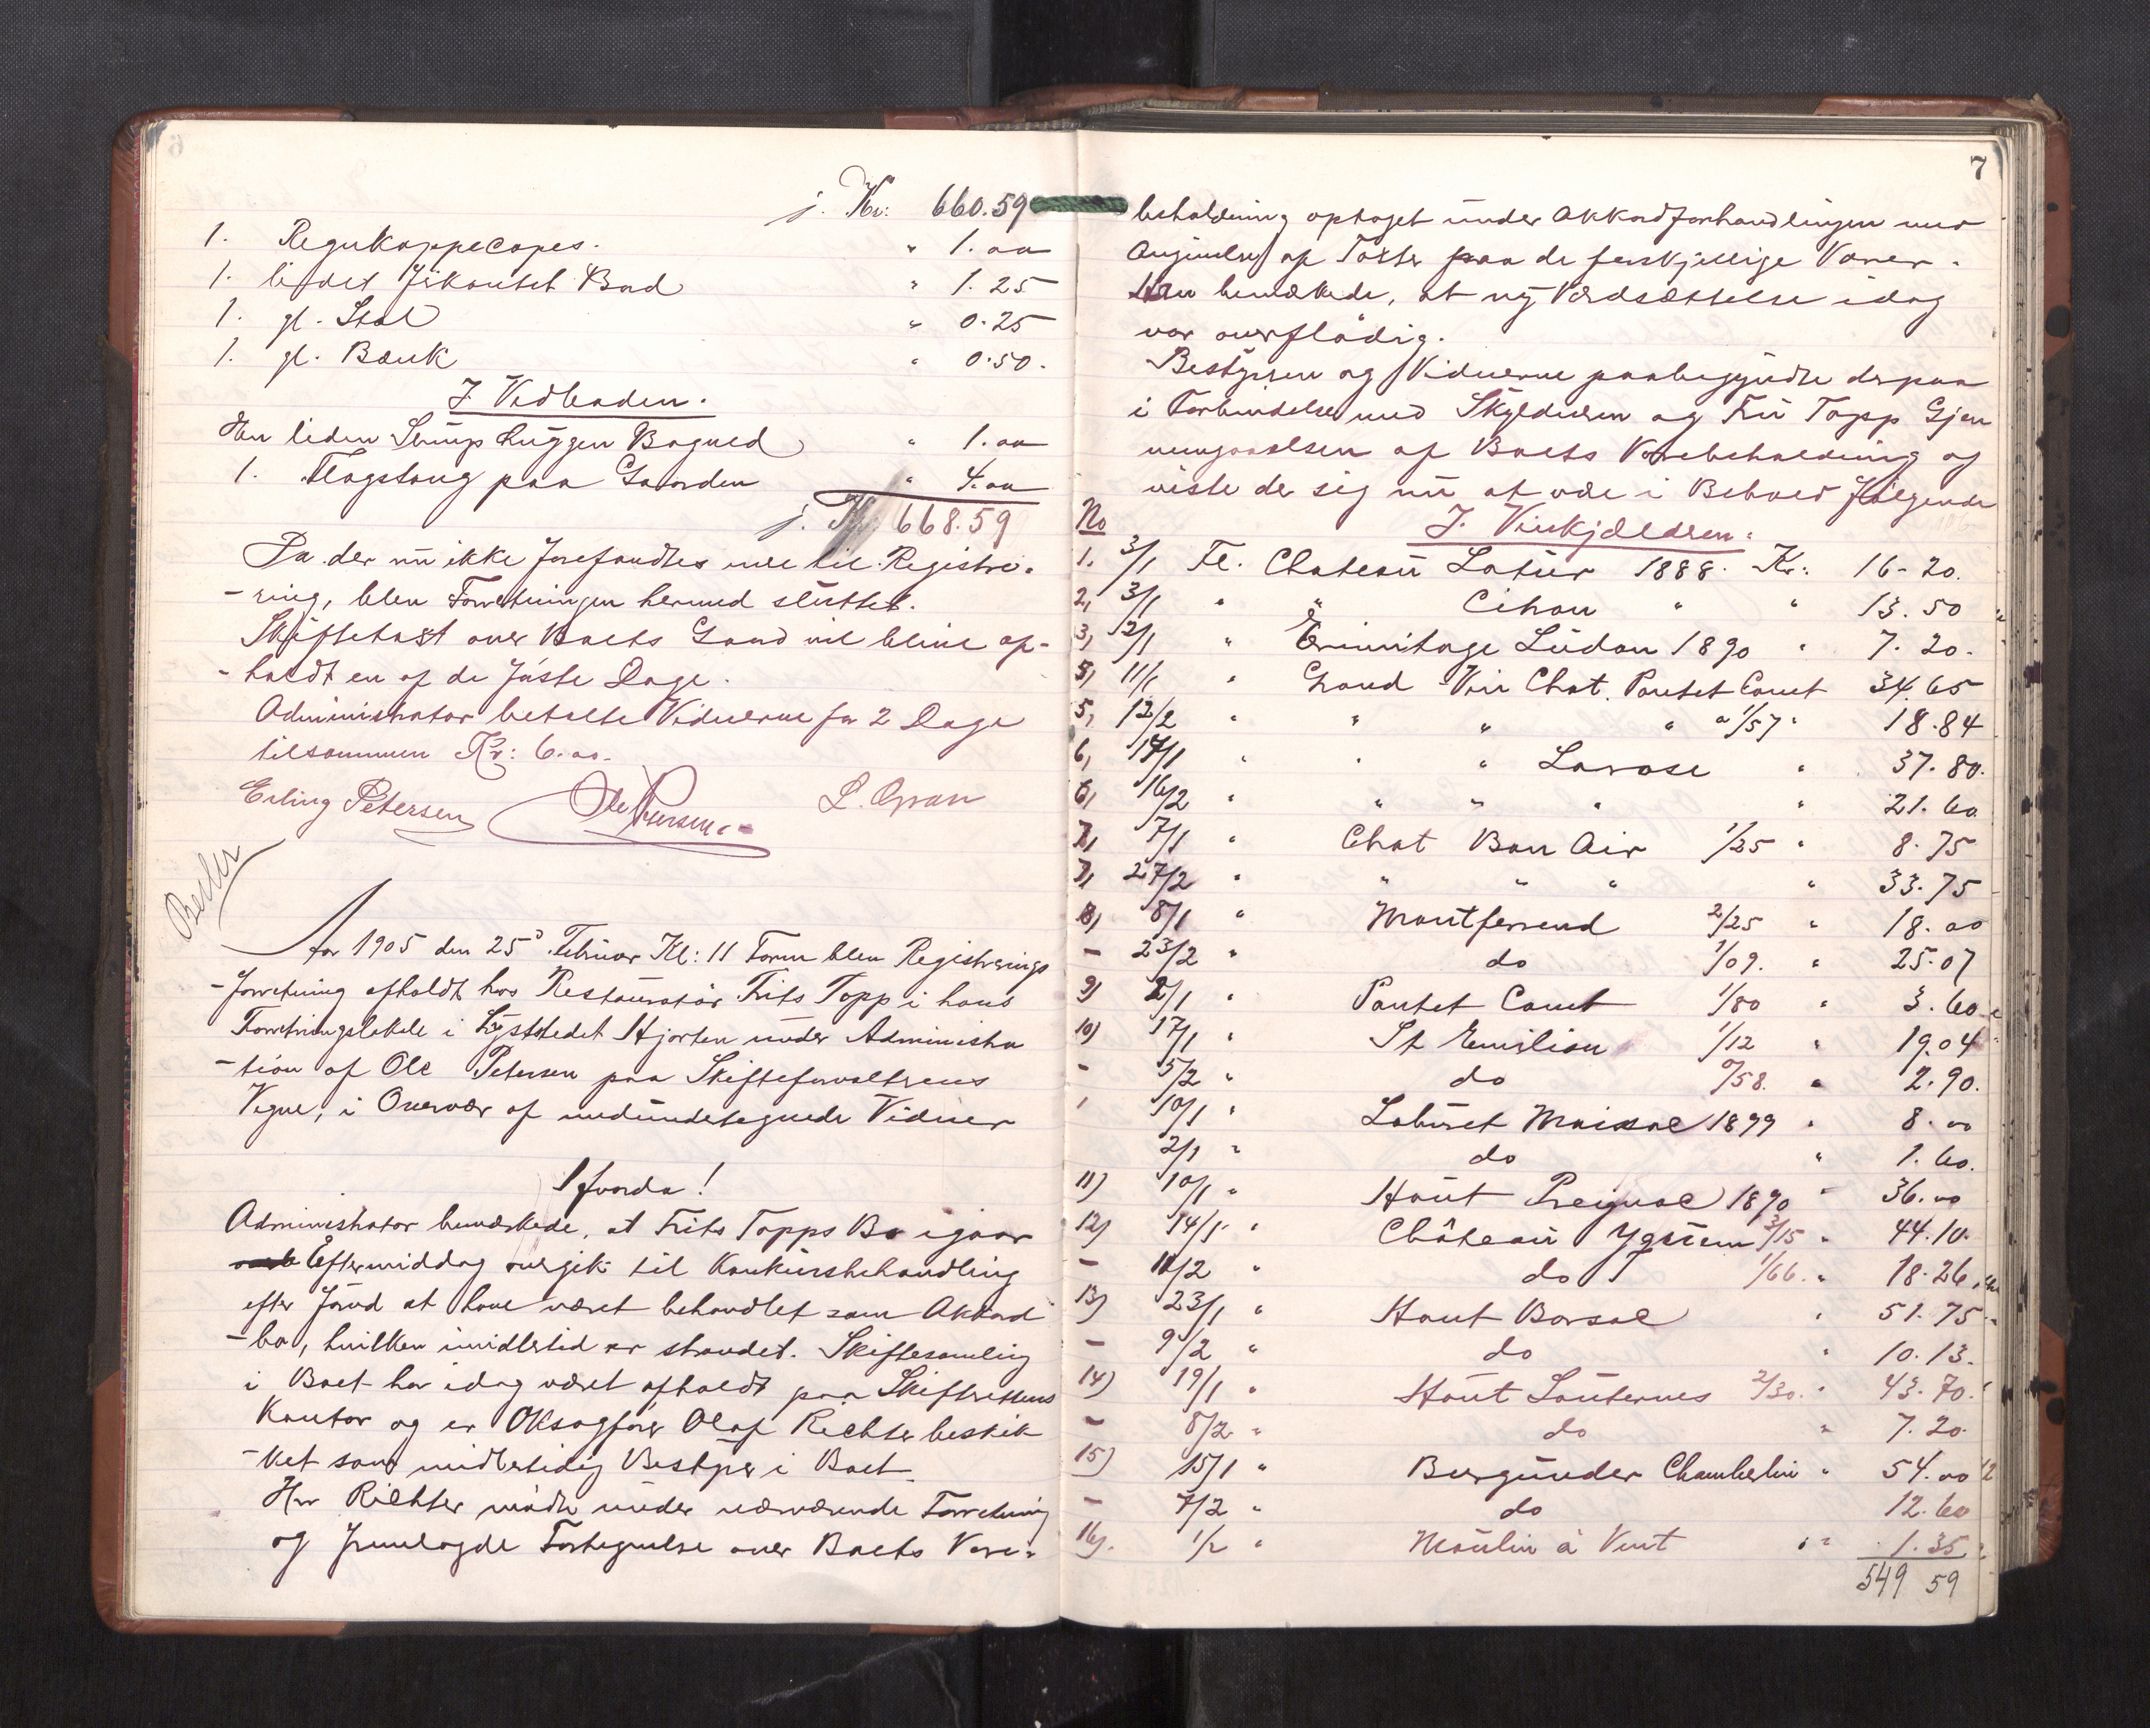 j. Kr: 660.59
1. Regnkappecapes. " 1.00
1. lidet Jirkantet Bord " 1.25
1. gl. Stol " 0.25
1. gl. Bænk " 0.50.
I Vedboden.
En liden Slump huggen Bagved " 1.00
1. Flagstang paa Gaarden " 4.00
j. Kr: 668.59
Da der nu ikke forefandtes mer til Registre-
-ring, blev Forretningen hermed sluttet.
Skiftetaxt over Boets Gaard vil blive af-
-holdt en af de første Dage.
Administrator betalte Vidnerne for 2 Dage
tilsammen Kr: 6.00.
Erling Petersen Ole Petersen L. Gran
Aar 1905 den 25d Februar Kl: 11 Form blev Registrerings
-forretning afholdt hos Restauratør Frits Topp i hans
Forretningslokale i Lyststedet Hjorten under Administra
-tion af Ole Petersen paa Skifteforvalterens
Vegne, i Overvær af medundertegnede Vidner
Hvorda!
Administrator bemærkede, at Frits Topps Bo igaar
Eftermiddag overgik til Konkursbehandling
efter først at have været behandlet som Akkord
-bo, hvilken imidlertid er strandet. Skiftesamling
i Boet har idag været afholdt paa Skifterettens
Kontor og er OKsagfører Olaf Richter beskik
-ket som midlertidig Bestyrer i Boet.
Hr Richter mødte under nærværende Forretning
og fremlagde Fortegnelse over Boets Vare-
7
beholdning optaget under Akkordforhandlingen med
Angivelse af Taxter paa de forskjellige Varer.
Han bemærkede, at ny Værdsættelse idag
var overflødig.
Bestyreren og Vidnerne paabegyndte derpaa
i Forbindelse med Skyldneren og Fru Topp Gjen
nemgaaelsen af Boets Varebeholdning og
viste der sig nu at være i Behold følgende
No I. Vinkjælderen.
1. 3/1 Fl. Chateau Latur 1888. Kr: 16-20.
2, 3/1 " " Citran " " 13.50
3, 2/1 " Ermitage Ludon 1890 " 7.20.
5, 11/1 " Grand Vin Chat. Pontet Canet 34.65
5, 12/2 " " " " a 1/57 " 18.84
6, 14/1 " " " Larose " 37.80.
6, 16/2 " " " " " 21.60
7, 7/1 " Chat Bon Air 1/25 " 8.75
7, 27/2 " " " " " 33.75
8, 8/1 " Montferrend 2/25 " 18.00
- 23/2 " do 1/09. " 25.07
9) 2/1 " Pontet Canet 1/80 " 3.60
10) 17/1 " St Emilion 1/12 " 19.04
- 5/2 " do 0/58. " 2.90.
10/1 " Loburet 1899 " 8.00
2/1 " do " 1.60.
11) 10/1 " Haut Preignac 1890 " 36.00
12) 14/1 " Château Yquem 3/15 " 44.10.
- 11/2 " do 1/66. " 18.26
13) 23/1 " Haut Barsac " 51.75
- 9/2 " do " 10.13.
14) 19/1 " Haut Sauternes 2/30. " 43.70.
- 8/2 " do " 7.20.
15) 15/1 " Burgunder Chamberlin " 54.00
- 7/2 " do 12.60
16). 1/2 " Moulin à Vent " " 1.35
549 59